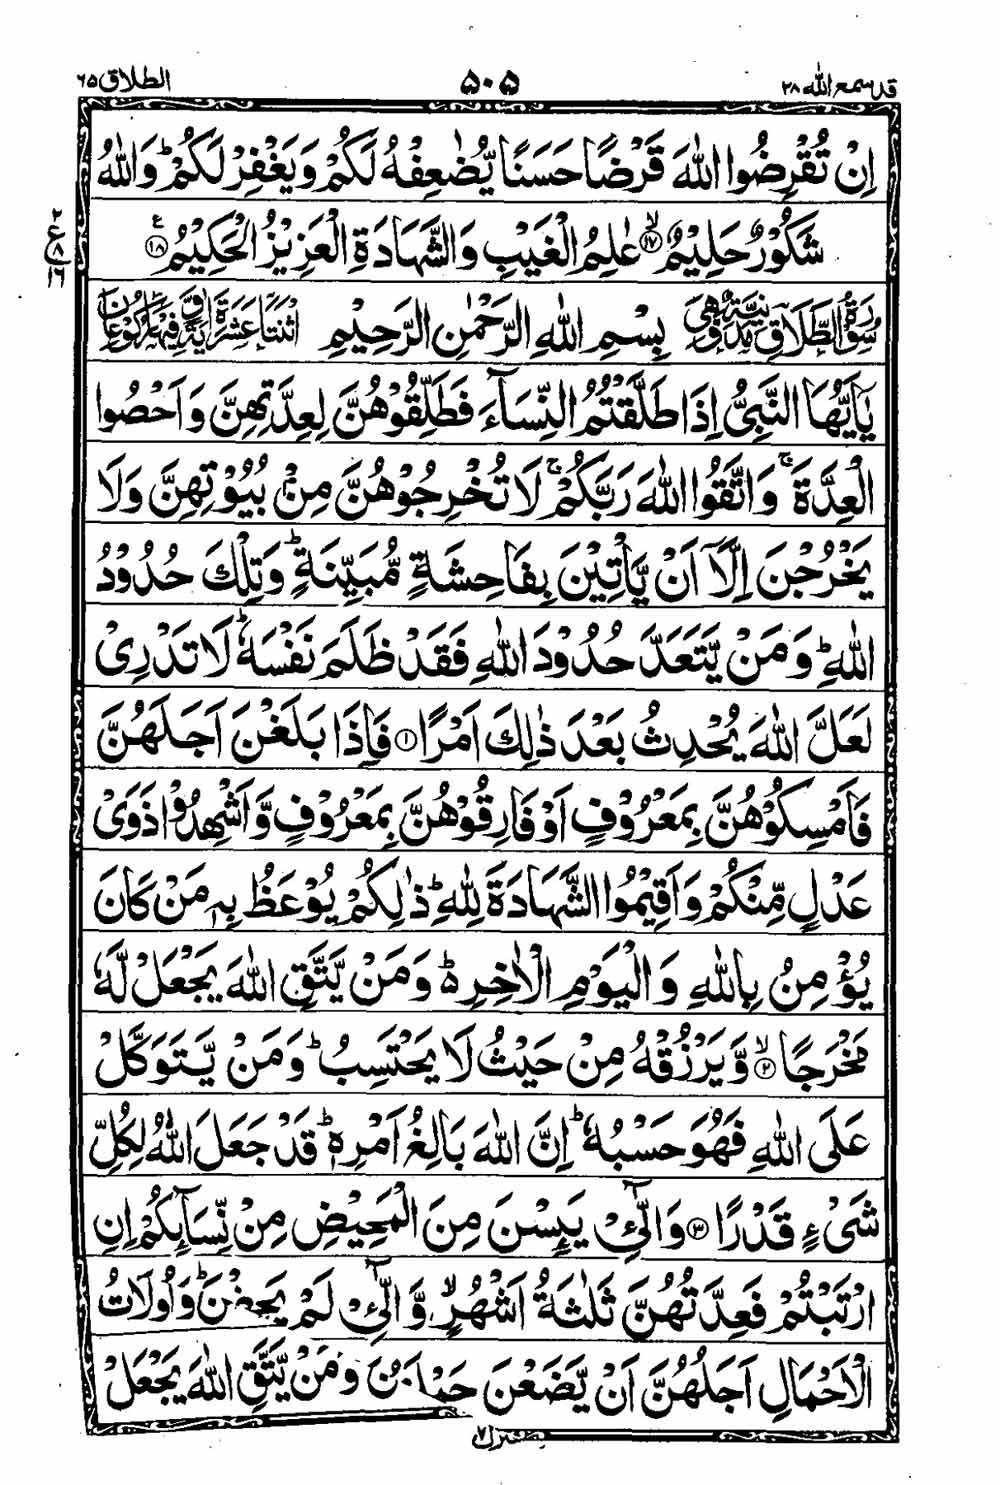 قد سمع الله ٢٨
٥٠٥
الطلاق ٦٥
اِنْ تُقْرِضُوا اللّٰهَ قَرْضًا حَسَنًا يُّضٰعِفْهُ لَكُمْ وَيَغْفِرْ لَكُمْ ؕ وَاللّٰهُ
شَكُوْرٌ حَلِيْمٌ ۙ﴿١٧﴾ عٰلِمُ الْغَيْبِ وَالشَّهَادَةِ الْعَزِيْزُ الْحَكِيْمُ ﴿١٨﴾ ع
٢
ع
٨
١٦
سُوْرَةُ الطَّلَاقِ مَدَنِيَّةٌ وَّهِيَ بِسْمِ اللّٰهِ الرَّحْمٰنِ الرَّحِيْمِ اثْنَتَا عَشْرَةَ اٰيَةً وَّفِيْهَا رُكُوْعَانِ
يٰۤاَيُّهَا النَّبِىُّ اِذَا طَلَّقْتُمُ النِّسَآءَ فَطَلِّقُوْهُنَّ لِعِدَّتِهِنَّ وَاَحْصُوا
الْعِدَّةَ ۚ وَاتَّقُوا اللّٰهَ رَبَّكُمْ ۚ لَا تُخْرِجُوْهُنَّ مِنْۢ بُيُوْتِهِنَّ وَلَا
يَخْرُجْنَ اِلَّاۤ اَنْ يَّاْتِيْنَ بِفَاحِشَةٍ مُّبَيِّنَةٍ ؕ وَتِلْكَ حُدُوْدُ
اللّٰهِ ؕ وَمَنْ يَّتَعَدَّ حُدُوْدَ اللّٰهِ فَقَدْ ظَلَمَ نَفْسَهٗ ؕ لَا تَدْرِىْ
لَعَلَّ اللّٰهَ يُحْدِثُ بَعْدَ ذٰلِكَ اَمْرًا ﴿١﴾ فَاِذَا بَلَغْنَ اَجَلَهُنَّ
فَاَمْسِكُوْهُنَّ بِمَعْرُوْفٍ اَوْ فَارِقُوْهُنَّ بِمَعْرُوْفٍ وَّاَشْهِدُوْا ذَوَىْ
عَدْلٍ مِّنْكُمْ وَاَقِيْمُوا الشَّهَادَةَ لِلّٰهِ ؕ ذٰلِكُمْ يُوْعَظُ بِهٖ مَنْ كَانَ
يُؤْمِنُ بِاللّٰهِ وَالْيَوْمِ الْاٰخِرِ ؕ۬ وَمَنْ يَّتَّقِ اللّٰهَ يَجْعَلْ لَّهٗ
مَخْرَجًا ۙ﴿٢﴾ وَّيَرْزُقْهُ مِنْ حَيْثُ لَا يَحْتَسِبُ ؕ وَمَنْ يَّتَوَكَّلْ
عَلَى اللّٰهِ فَهُوَ حَسْبُهٗ ؕ اِنَّ اللّٰهَ بَالِغُ اَمْرِهٖ ؕ قَدْ جَعَلَ اللّٰهُ لِكُلِّ
شَىْءٍ قَدْرًا ﴿٣﴾ وَالّٰٓـىِٔ يَىِٕسْنَ مِنَ الْمَحِيْضِ مِنْ نِّسَآىِٕكُمْ اِنِ
ارْتَبْتُمْ فَعِدَّتُهُنَّ ثَلٰثَةُ اَشْهُرٍ ۙ وَّالّٰٓـىِٔ لَمْ يَحِضْنَ ؕ وَاُولَاتُ
الْاَحْمَالِ اَجَلُهُنَّ اَنْ يَّضَعْنَ حَمْلَهُنَّ ؕ وَمَنْ يَّتَّقِ اللّٰهَ يَجْعَلْ
منزل ٧